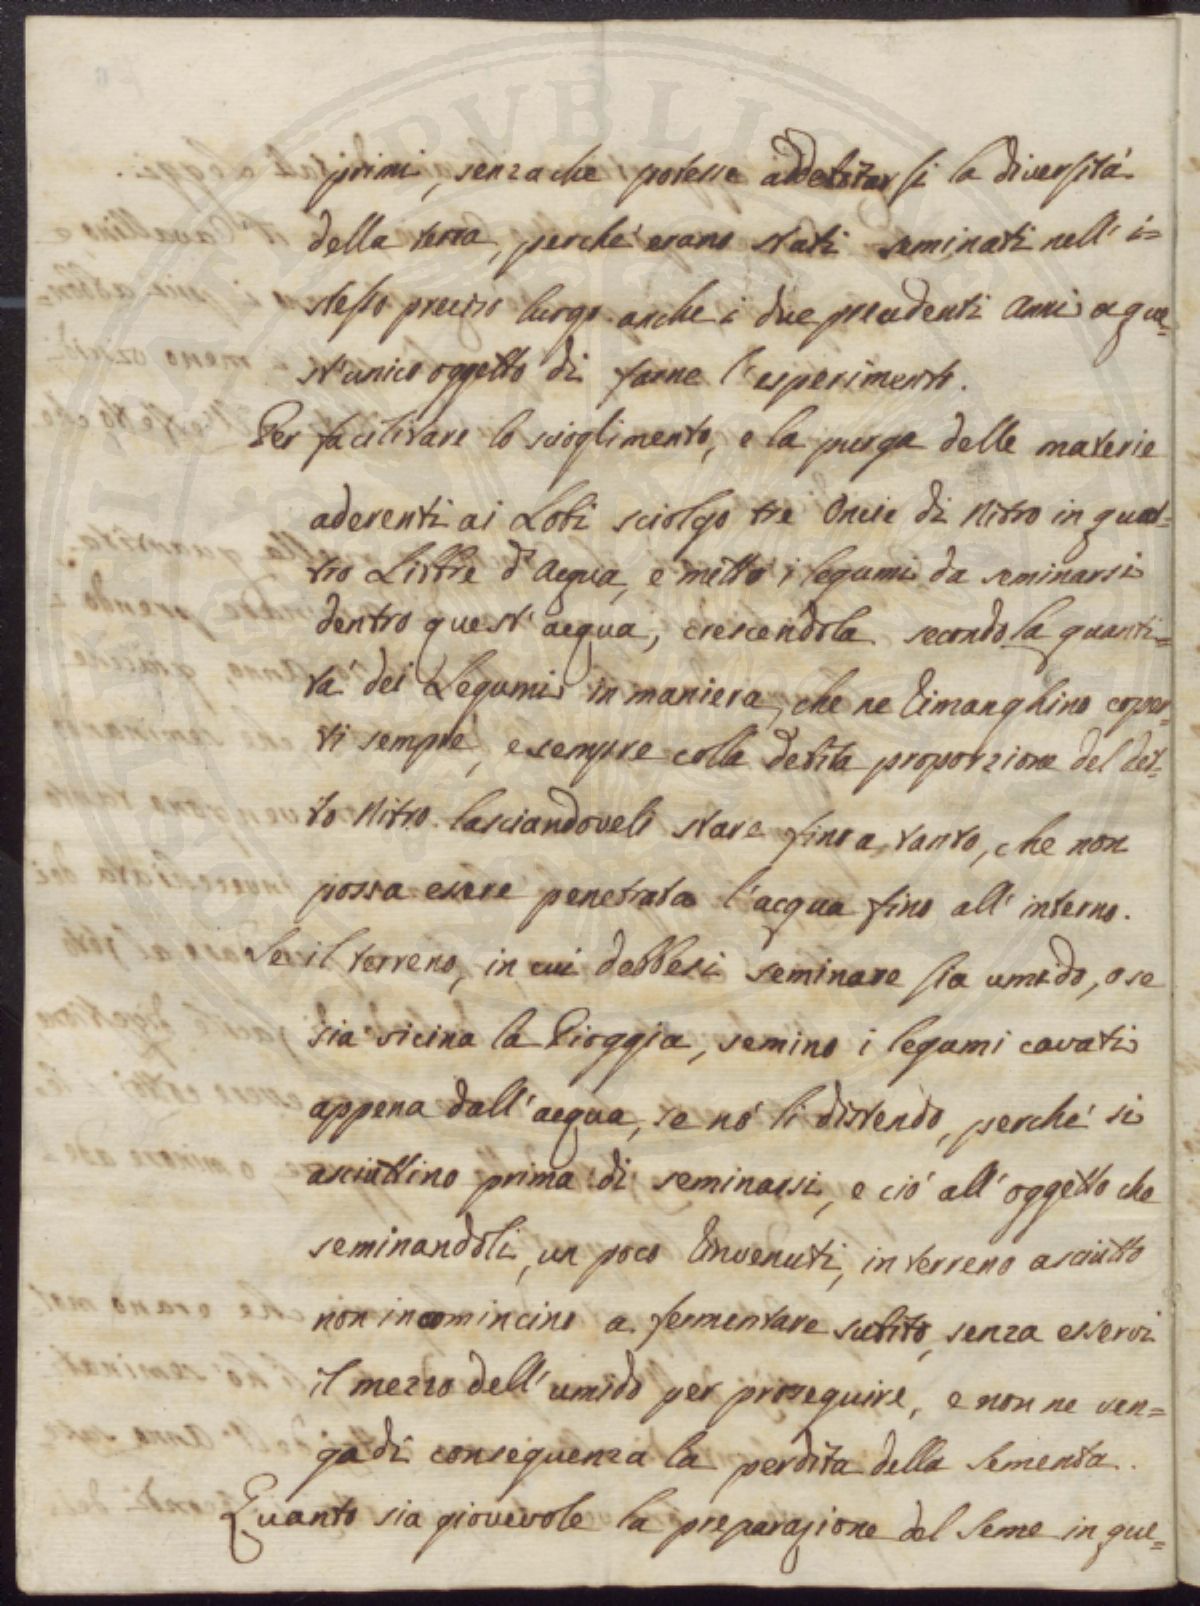 primi, senza che potesse addebitarsi la diversità
della terra, perché erano stati seminati nell' i=
stesso preciso luogo anche i due precedenti Anni a que=
st'unico oggetto di farne l'esperimento.
Per facilitare lo scioglimento, e la purga delle materie
aderenti ai Lobi sciolgo tre Oncie di Nitro in quat=
tro Libbre d'Acqua, e metto i legumi da seminarsi
dentro quest'acqua, crescendola secondo la quanti=
tà dei Legumi in maniera, che ne rimanghino coper=
ti sempre, e sempre colla debita proporzione del det=
to Nitro lasciandoveli stare fino a tanto, che non
possa essere penetrata l'acqua fino all'interno.
Se il terreno, in cui debbesi seminare sia umido, o se
sia vicina la Pioggia, semino i legumi cavati
appena dall'acqua, se nò li distendo, perché si
asciuttino prima di seminarsi, e ciò all'oggetto che
seminandoli, un poco invenuti, in terreno asciutto
non incomincino a fermentare subito, senza esservi
il mezzo dell'umido per proseguire, e non ne ven=
ga di conseguenza la perdita della Sementa.
Quanto sia giovevole la preparazione del Seme in que=